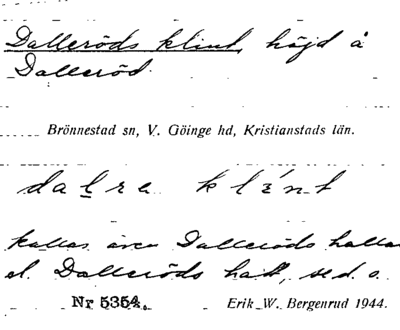 Dalleröds klint, höjd å
Dalleröd.
Brönnestad sn, V. Göinge hd, Kristianstads län.
dalra klént
kallas även Dalleröds halla
el. Dalleröds hall, se d. o.
Nr 5354.
Erik W. Bergenrud 1944.